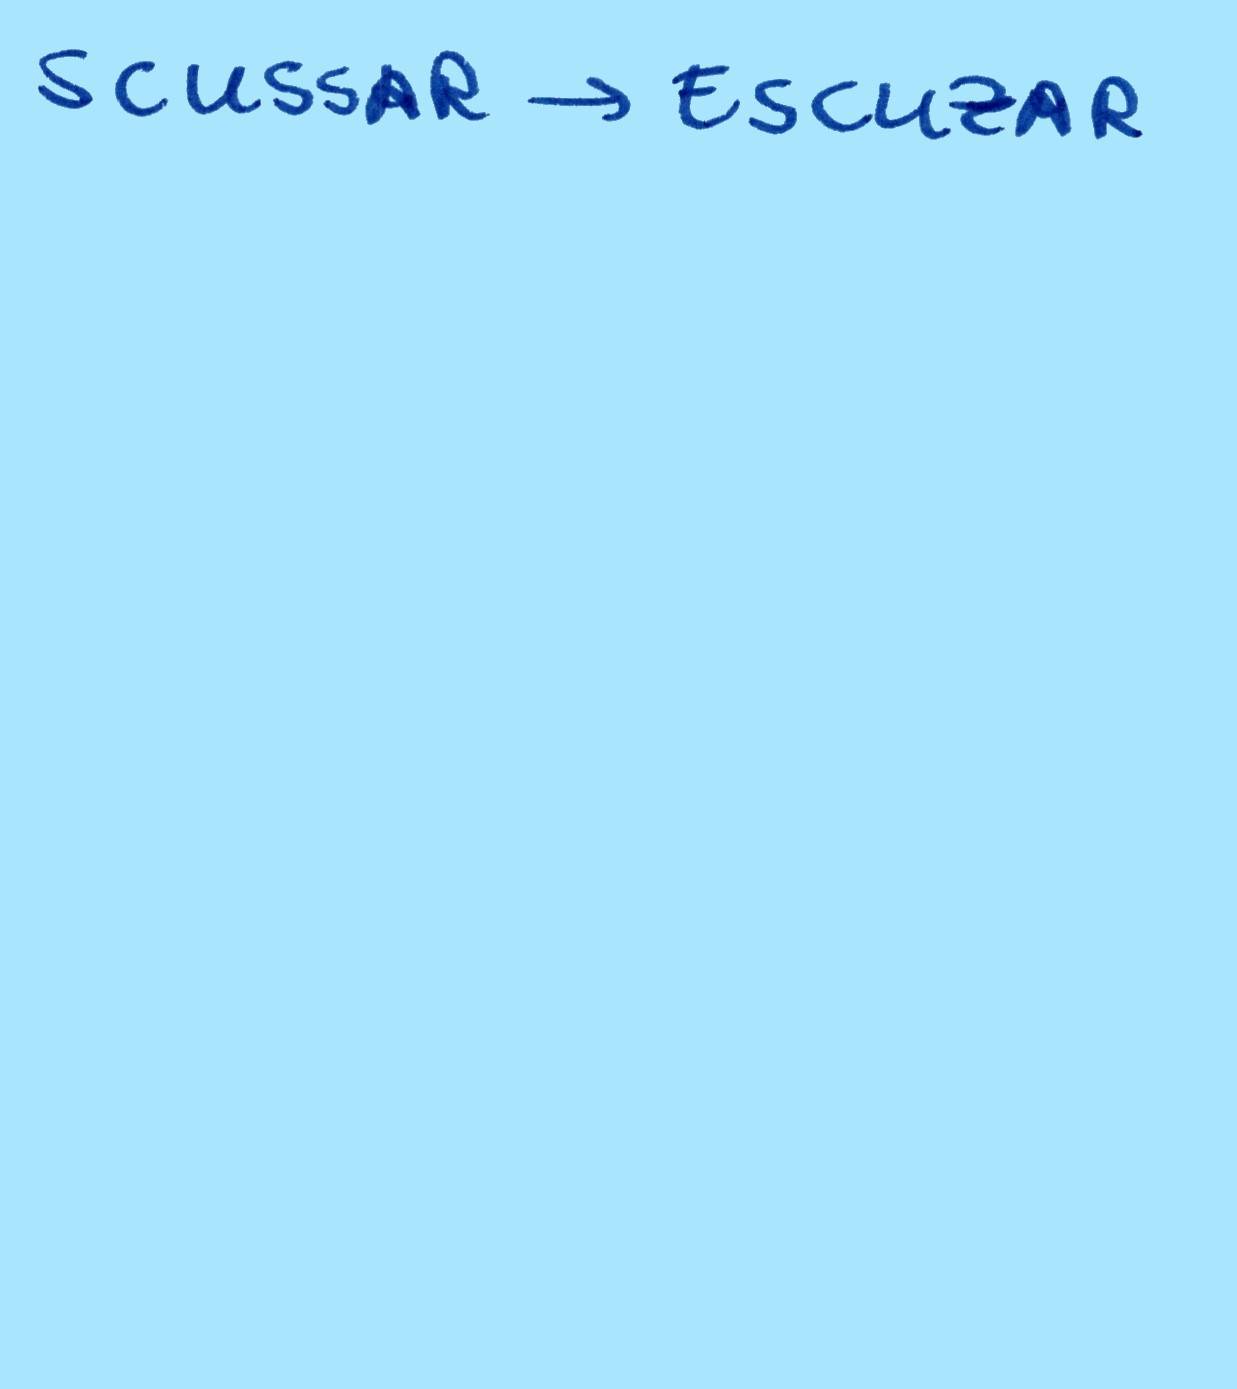 SCUSSAR → ESCUZAR